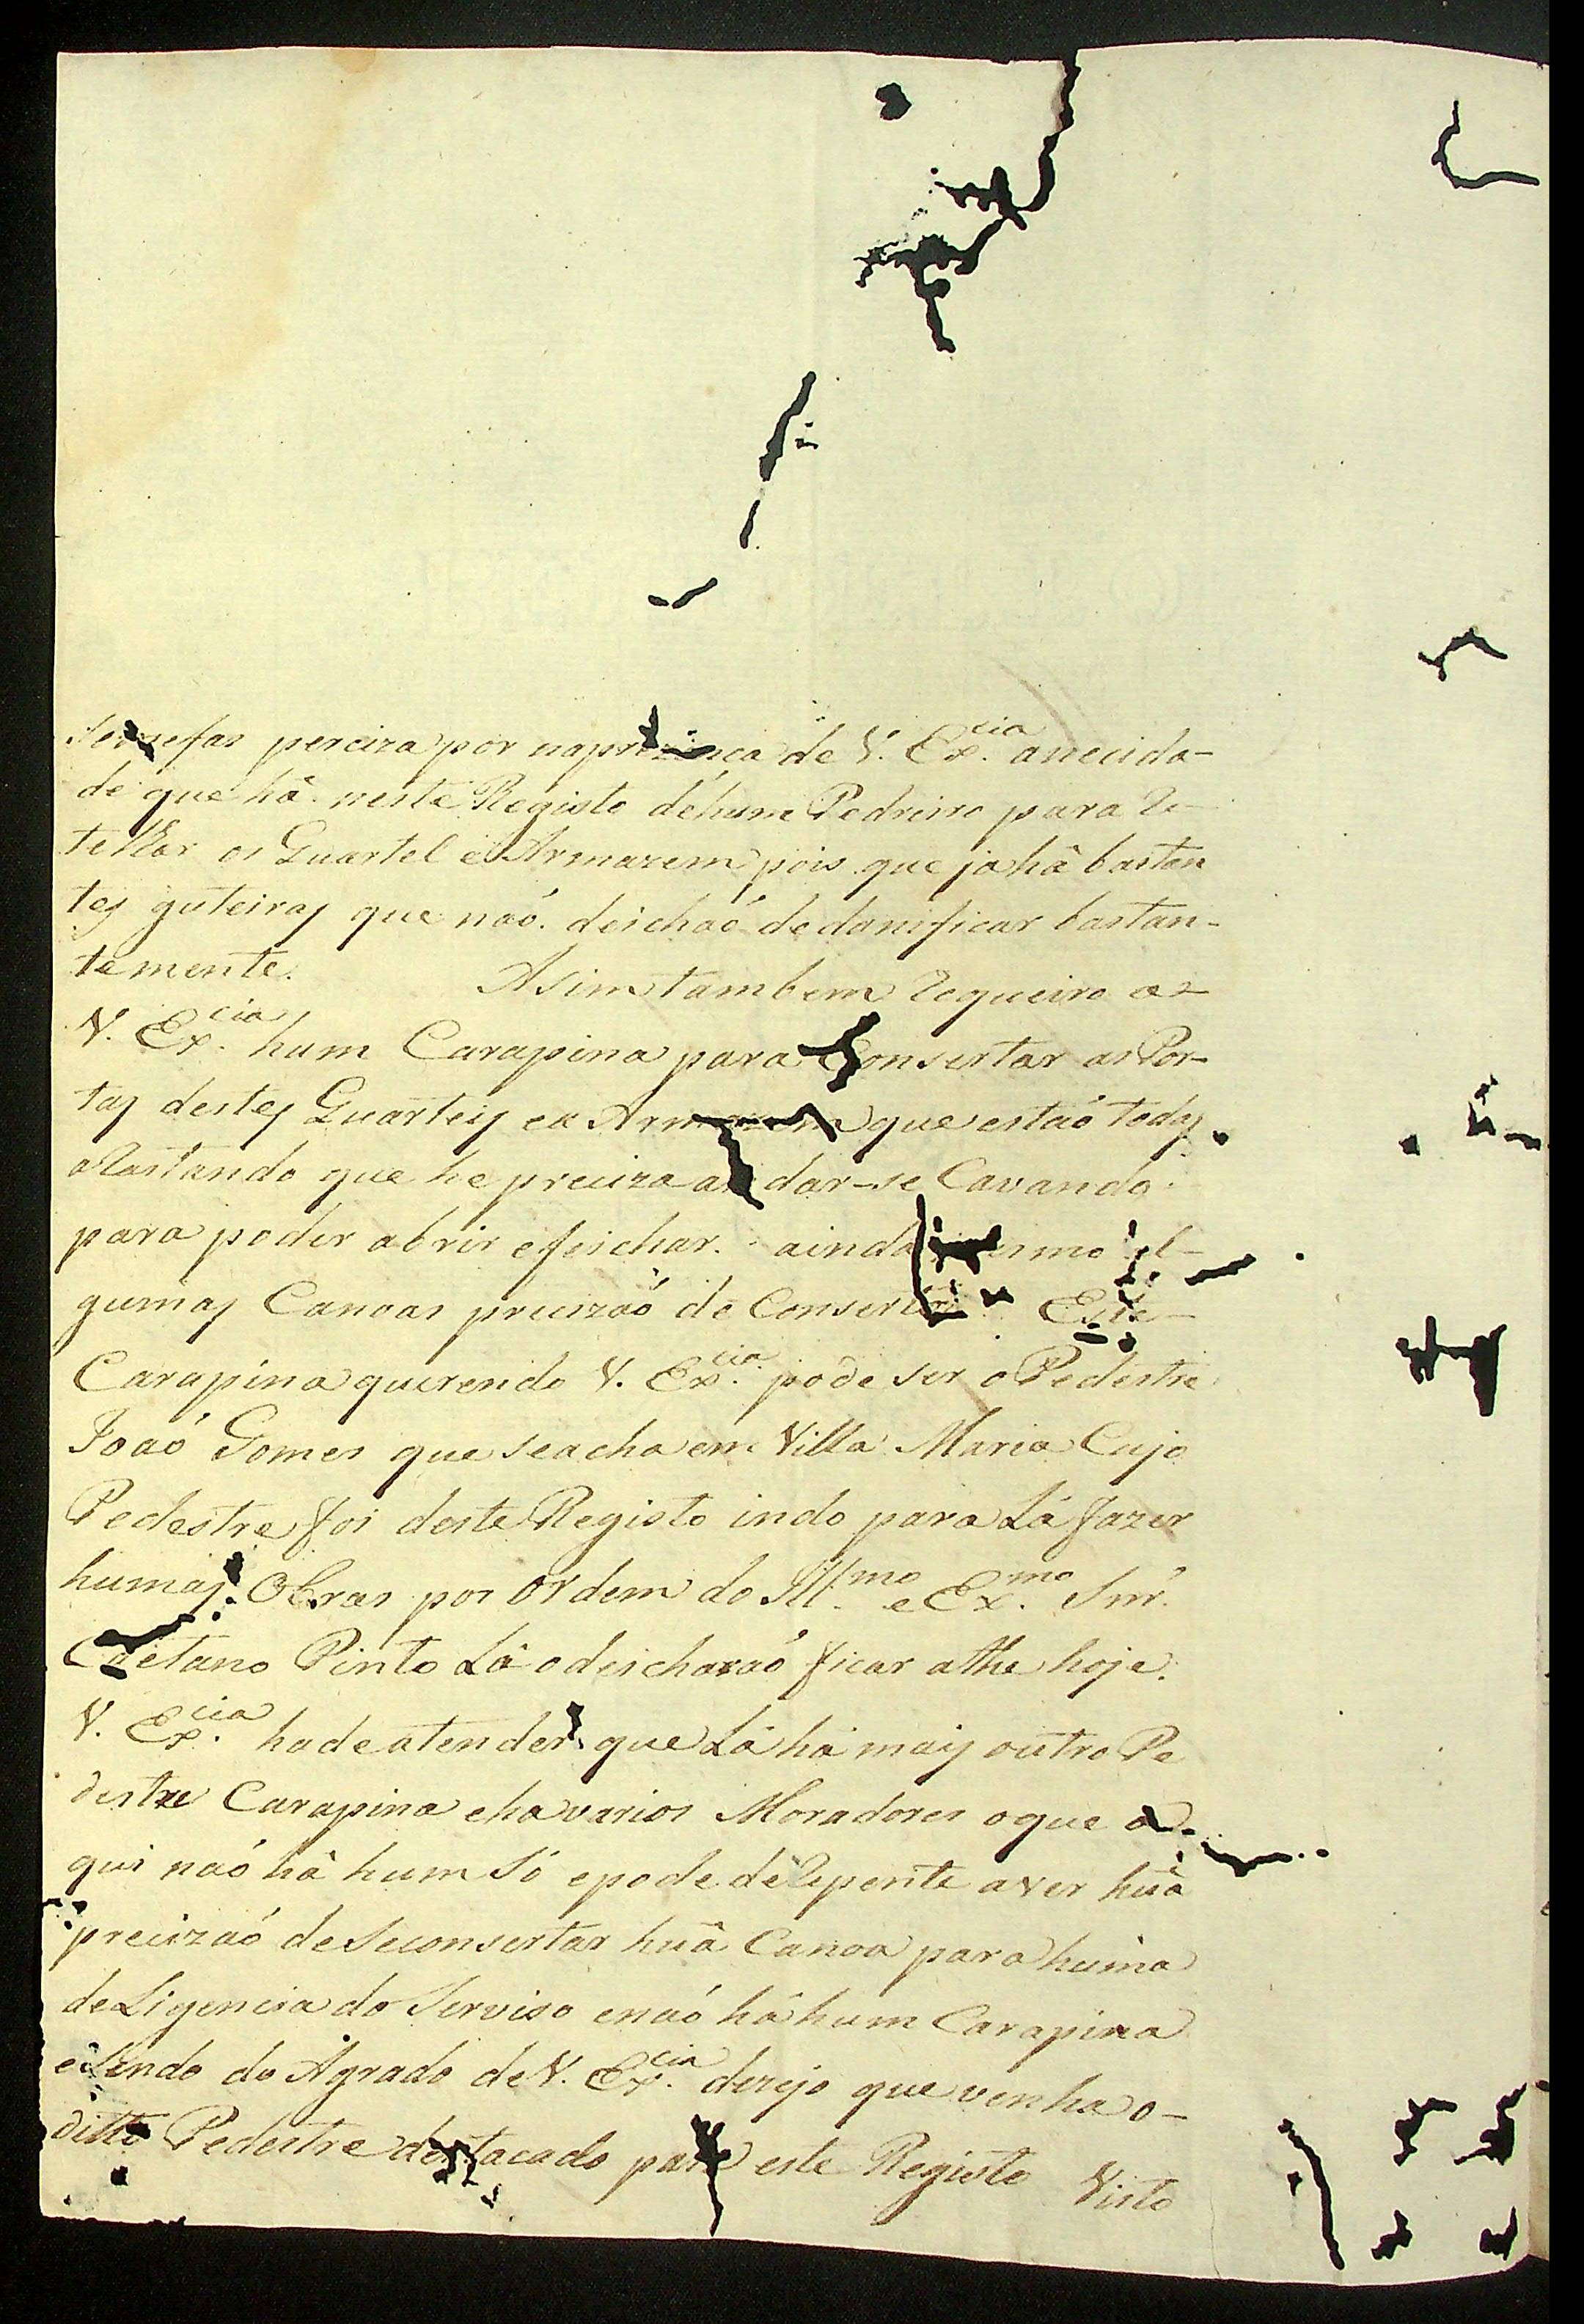 Sersefas perciza por naprezença de V. Ex.cia anecida-
de que hâ neste Registo dehum Pedriro para Re-
telhar os Quartel e Armazem pois que ja hâ bastan
tes guteiras que naó deichaó de danificar bastan-
temente. Asim tambem Requeiro a-
V. Ex.cia hum Carapina para Consertar as Por-
tas destes Quarteis e a Armazem que estaó todas
aRastando que he preciza andar-se Cavando
para poder abrir efeichar. ainda mesmo al-
gumas Canoas precizaó de Consertar Este
Carapina querendo V. Ex.cia pode ser o Pedestre
Joaó Gomes que seacha em Villa Maria Cujo
Pedestre foi deste Registo indo para Lá fazer
humas Obras por Ordem do Ill.mo e Ex.mo Snr.
Caetano Pinto Lâ odeicharaó ficar athe hoje.
V. Ex.cia hadeatender que Lá há mais outro Pe
destre Carapina eha varios Moradores oque a-
qui naó hâ hum Só epode deRepente aver huã
precizaó deSeconsertar huã Canoa para huma
deLigencia do Serviso enaó hâ hum Carapina
eSendo do Agrado de V. Ex.cia dezejo que venha o-
ditto Pedestre destacado para este Registo Visto